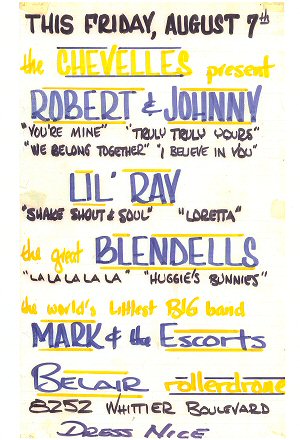 THIS FRIDAY, AUGUST 7th
the CHEVELLES present
ROBERT & JOHNNY
"YOU'RE MINE" "TRULY TRULY YOURS"
"WE BELONG TOGETHER" "I BELIEVE IN YOU"
LIL' RAY
"SHAKE SHOUT & SOUL" "LORETTA"
the great BLENDELLS
"LA LA LA LA LA" "HUGGIE'S BUNNIES"
the world's littlest BIG band
MARK & the Escorts
BELAIR rollerdrome
8252 WHITTIER BOULEVARD
DRESS NICE